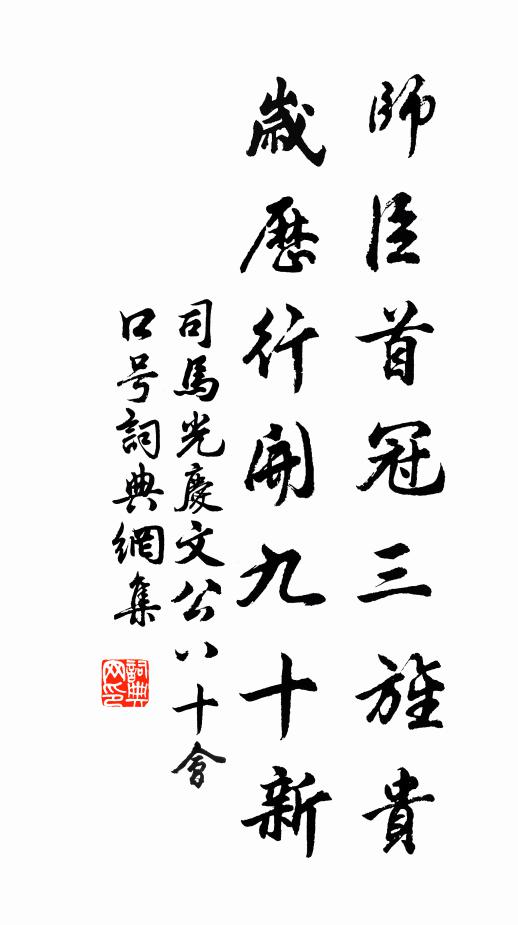 師臣首冠三旌貴
歳歷行開九十新
司馬光慶文公八十會
口号詞典網集
詞典网印